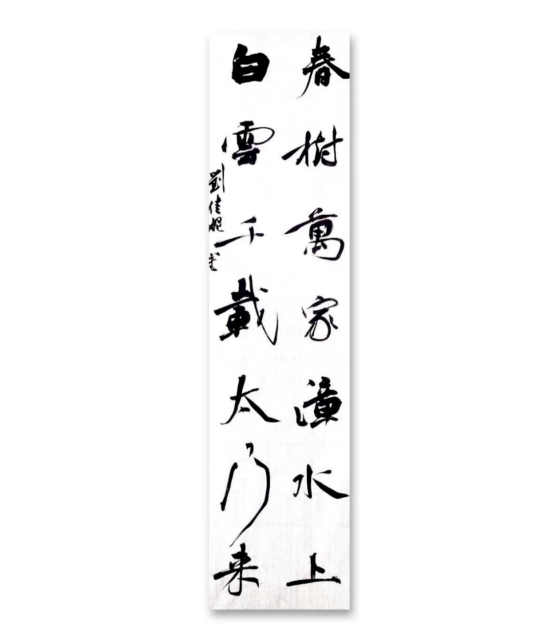 春樹萬家漳水上
白雲千載太乃来
劉佳妮書